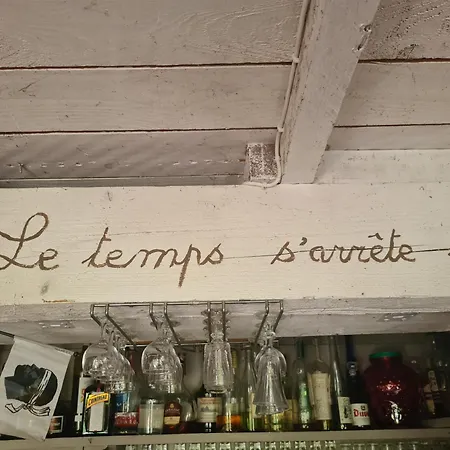 Le temps s'arrête